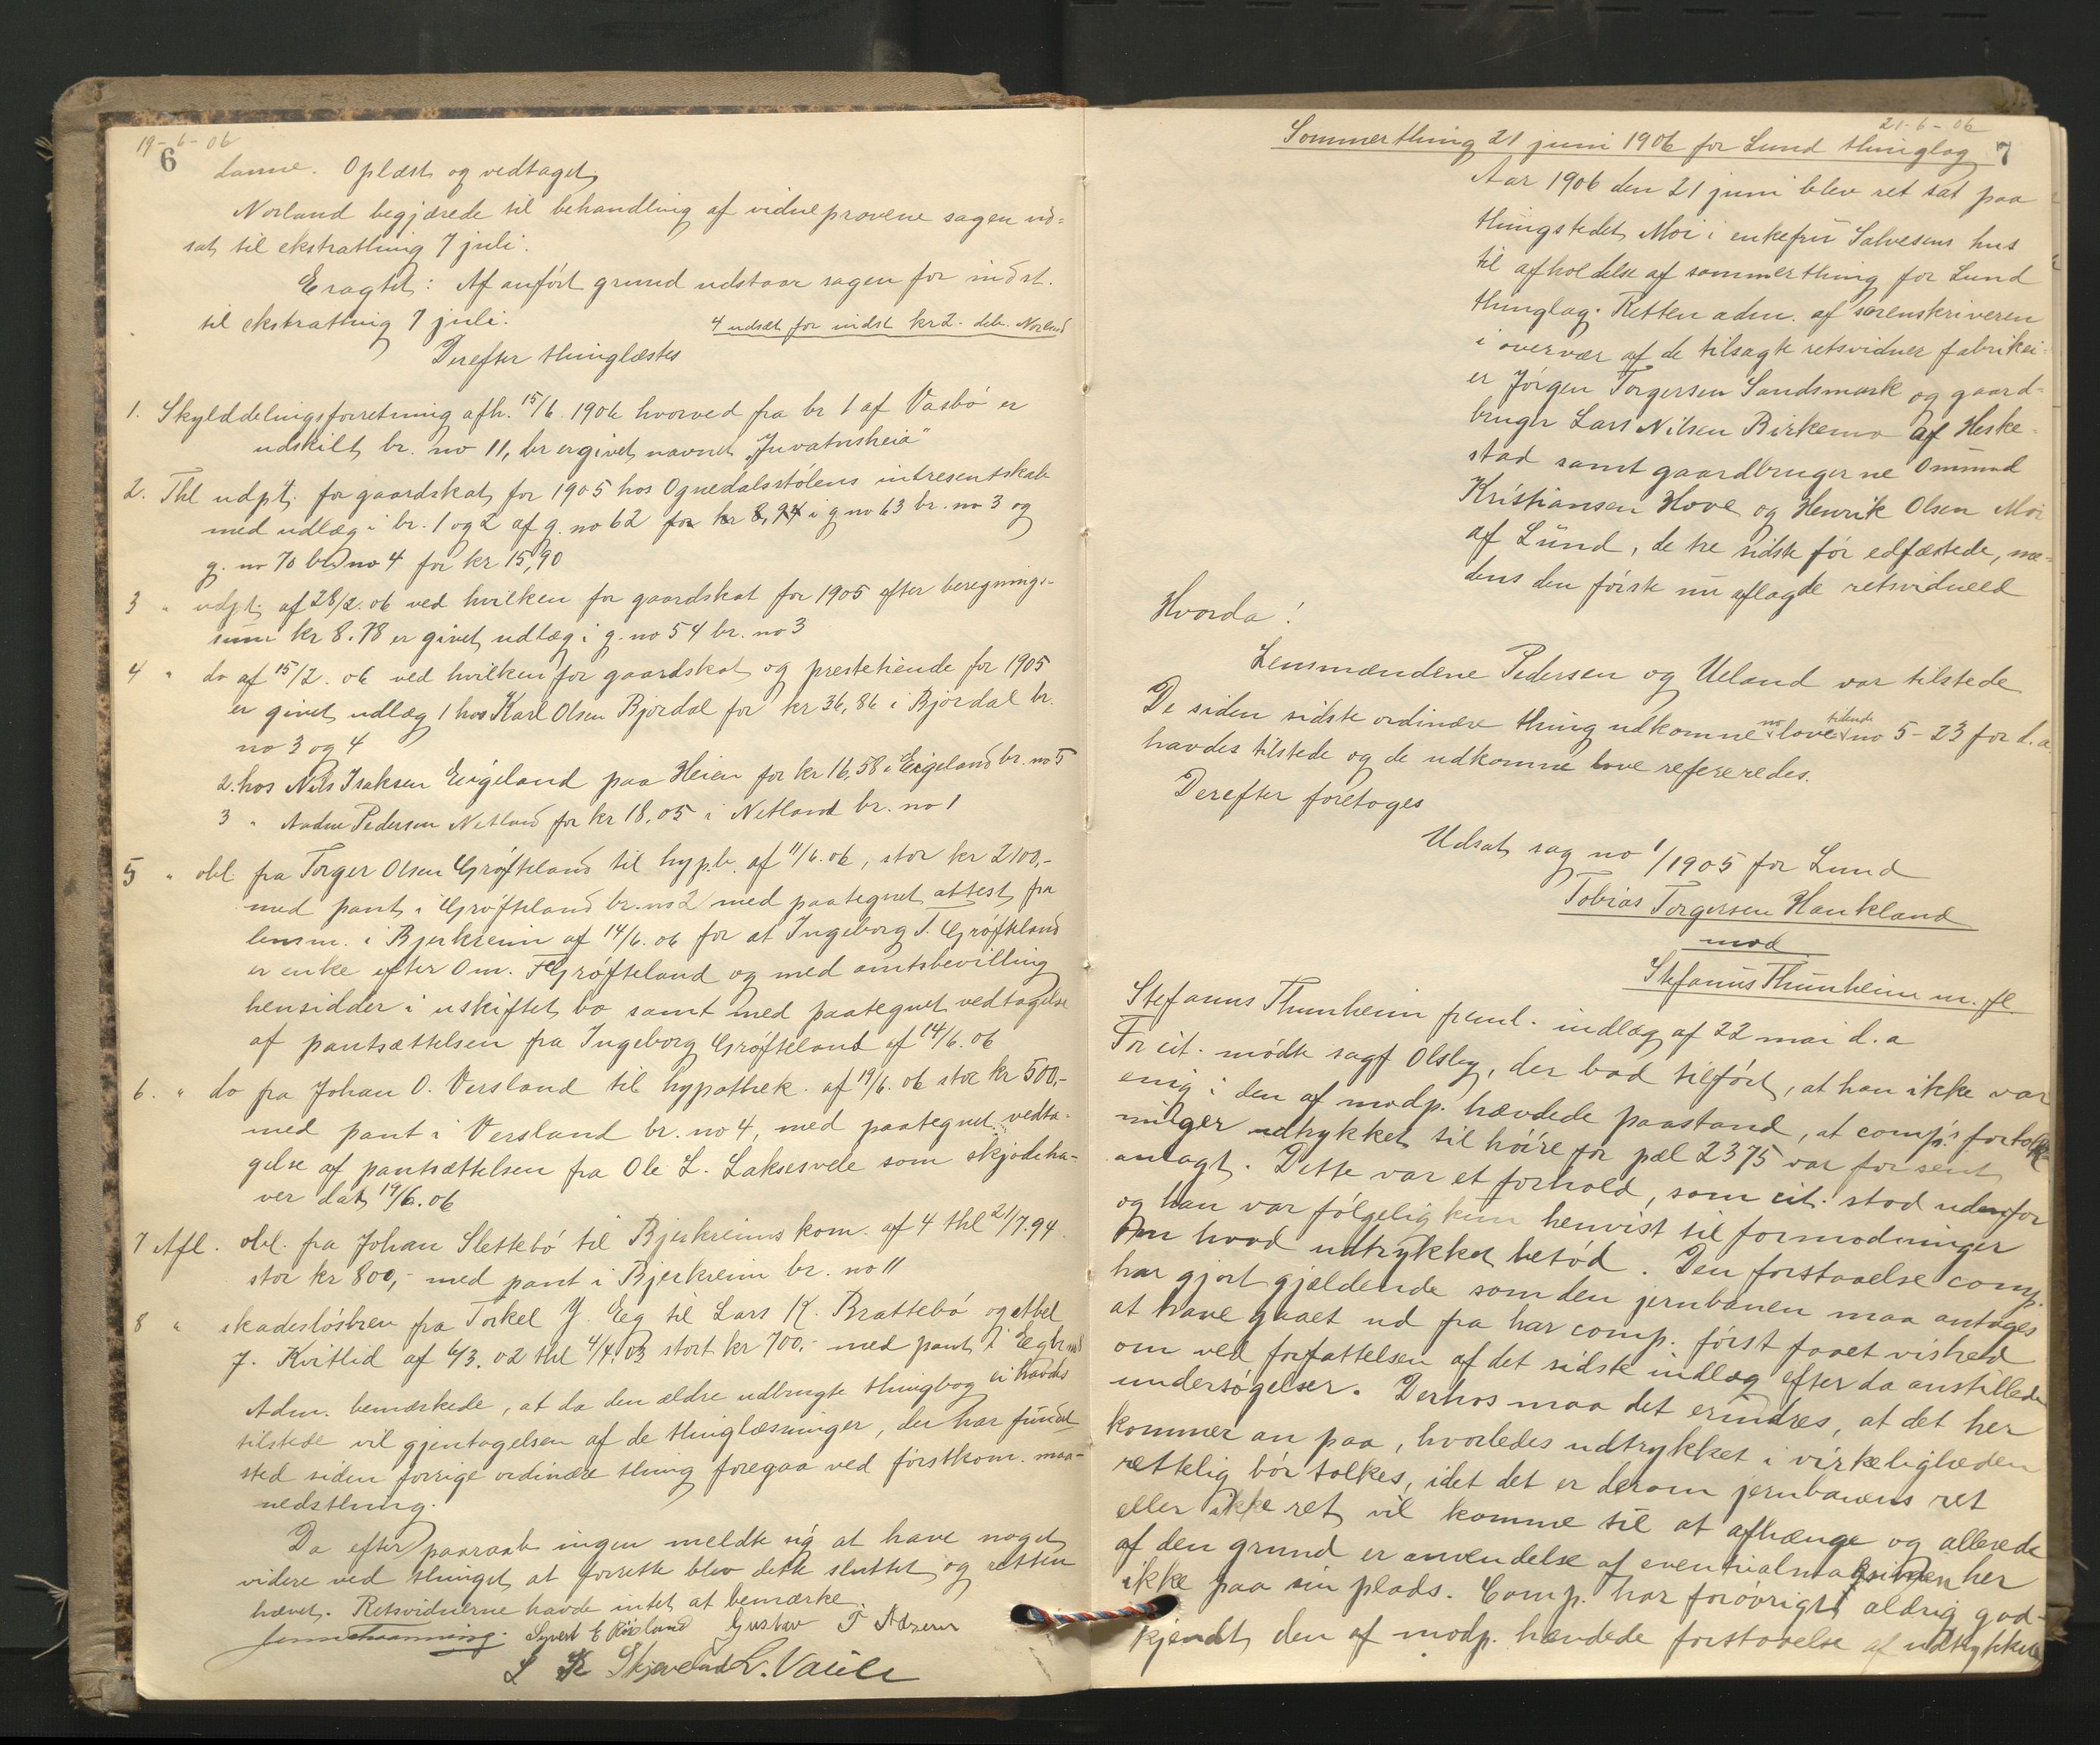 19-6-06
6
danne. Oplæst og vedtaget
Norland begjærede til behandling af vidneprovene sagen ud=
sat til ekstrathing 7 juli.
Eragtet: Af anført grund udstaar sagen for indst.
til ekstrathing 7 juli.
4 udsæt. for indst. kr 2. deb. Norland
Derefter thinglæstes
1. Skylddelingsforretning afh. 15/6 1906 hvorved fra br 1 af Vasbø er
udskilt br. no 11, der er givet navnet „Juvatnsheia"
2. Thl udpt. for gaardskat for 1905 hos Ognedalsstølens intresentskab
med udlæg i br. 1 og 2 af g. no 62 for kr 8,94 i g no 63 br. no 3 og
g. no 70 br no 4 for kr 15,90
3 " udpt. af 28/2. 06 ved hvilken for gaardskat for 1905 efter beregnings-
sum kr 8.78 er givet udlæg i g. no 54 br. no 3
4 " do af 15/2. 06 ved hvilken for gaardskat og prestetiende for 1905
er givet udlæg 1 hos Karl Olsen Bjordal for kr 36,86 i Bjordal br.
no 3 og 4
2. hos Nils Isaksen Eigeland paa Heien for kr 16,58 i Eigeland br. no 5
3 " Aadne Pedersen Netland for kr 18.05 i Netland br. no 1
5 " obl fra Torger Olsen Grøfteland til hyp.b. af 11/6. 06, stor kr 2100,-
med pant i Grøfteland br. no 2 med paategnet attest fra
lensm. i Bjerkreim af 14/6. 06 for at Ingeborg T. Grøfteland
er enke efter Om. T Grøfteland og med amtsbevilling
hensidder i uskiftet bo samt med paategnet vedtagelse
af pantsættelsen fra Ingeborg Grøfteland af 14/6. 06
6. " do fra Johan O. Versland til hypothek. af 19/6. 06 stor kr 500,-
med pant i Versland br. no 4, med paategnet vedta-
gelse af pantsættelsen fra Ole L. Laksesvele som skjødeha-
ver dat 19/6. 06
7 Afl. obl. fra Johan Slettebø til Bjerkreims kom. af 4 thl 21/7. 94
stor kr 800,- med pant i Bjerkreim br. no 11
8 " skadesløsbrev fra Torkel Y. Eeg til Lars K. Brattebø og Abel
J. Kvitlid af 6/3. 02 thl 4/4. 03 stort kr 700,- med pant i Eeg br no
Adm. bemærkede, at da den ældre udbrugte thingbog ei havdes
tilstede vil gjentagelsen af de thinglæsninger, der har fundet
sted siden forrige ordinære thing foregaa ved førstkom. maa-
nedsthing.
Da efter paaraab ingen meldte sig at have noget
videre ved thinget at forrette blev dette sluttet og retten
hævet. Retsvidnerne havde intet at bemærke.
Syvert E Røisland Gustav T
L K Skjæveland
21-6-06
Sommerthing 21 juni 1906 for Lund thinglag 7
Aar 1906 den 21 juni blev ret sat paa
thingstedet Moi i enkefru Salvesens hus
til afholdelse af sommerthing for Lund
thinglag. Retten adm. af sorenskriveren
i overvær af de tilsagte retsvidner fabrikei-
er Jørgen Torgersen Sandsmark og gaard-
bruger Lars Nilsen Birkemo af Heske-
stad samt gaardbrugerne Ommund
Kristiansen Hove og Henrik Olsen Moi
af Lund, de tre sidste før edfæstede, me-
dens den første nu aflagde retsvidneed
Hvorda!
Lensmændene Pedersen og Ueland var tilstede
De siden sidste ordinære thing udkomne no lovtidende no 5-23 for d. a
havdes tilstede og de udkomne love refereredes.
Derefter foretoges
Udsat sag no 1/1905 for Lund
Tobias Torgersen Haukland
mod
Stefanus Thunheim m. fl
Stefanus Thunheim freml. indlæg af 22 mai d. a
For cit. mødte sagf Olsby, der bad tilført, at han ikke var
enig i den af modp. hævdede paastand, at comp.s fortolk-
ninger udtrykket til høire for pæl 2375 var for sent
antagt. Dette var et forhold, som cit. stod udenfor
og han var følgelig kun henvist til formodninger
om hvad udtrykket betød. Den forstaaelse comp.
har gjort gjældende som den jernbanen maa antages
at have gaaet ud fra har comp. først faaet vished
om ved forfattelsen af det sidste indlæg efter da anstillede
undersøgelser. Derhos maa det erindres, at det her
kommer an paa, hvorledes udtrykket i virkeligheden
rettelig bør tolkes, idet det er derom jernbanens ret
eller ikke ret vil komme til at afhænge og allerede
af den grund er anvendelse af eventualmaksimen her
ikke paa sin plads. Comp. har forøvrigt aldrig god-
kjendt den af modp. hævdede forstaaelse af udtrykket